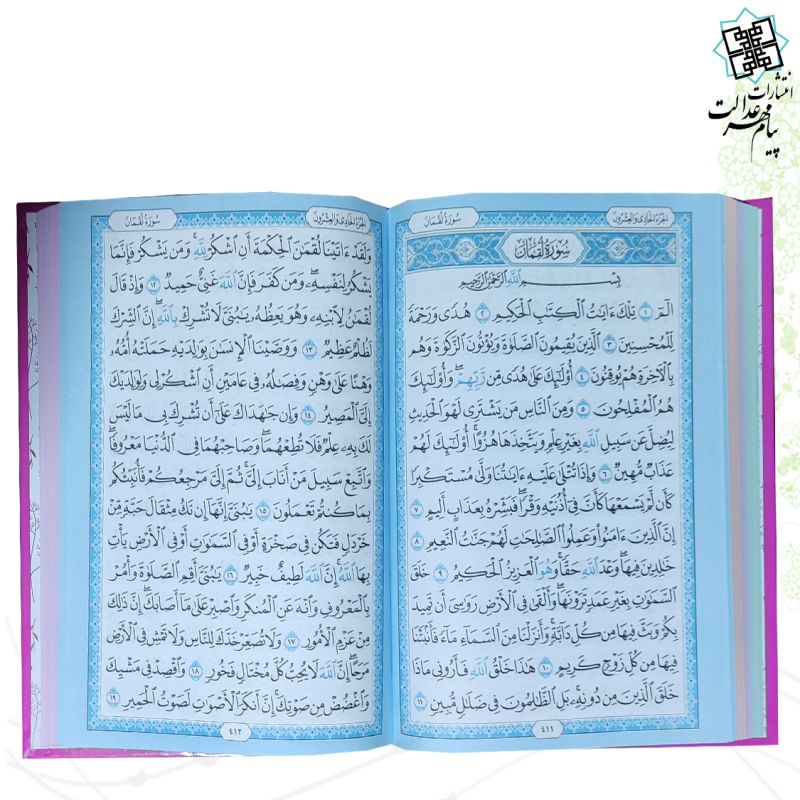 انتشارات
پیام مهر عدالت
الجزء الحادی والعشرون
سورة لقمان
سُورَةُ لُقمَانَ
بِسْمِ اللَّهِ الرَّحْمَٰنِ الرَّحِيمِ
الٓمٓ ١ تِلْكَ ءَايَٰتُ الْكِتَٰبِ الْحَكِيمِ ٢ هُدًى وَرَحْمَةً
لِلْمُحْسِنِينَ ٣ الَّذِينَ يُقِيمُونَ الصَّلَوٰةَ وَيُؤْتُونَ الزَّكَوٰةَ وَهُم
بِالْءَاخِرَةِ هُمْ يُوقِنُونَ ٤ أُولَٰئِكَ عَلَىٰ هُدًى مِن رَبِّهِمْ ۖ وَأُولَٰئِكَ
هُمُ الْمُفْلِحُونَ ٥ وَمِنَ النَّاسِ مَن يَشْتَرِى لَهْوَ الْحَدِيثِ
لِيُضِلَّ عَن سَبِيلِ اللَّهِ بِغَيْرِ عِلْمٍ وَيَتَّخِذَهَا هُزُوًا ۚ أُولَٰئِكَ لَهُمْ
عَذَابٌ مُهِينٌ ٦ وَإِذَا تُتْلَىٰ عَلَيْهِ ءَايَٰتُنَا وَلَّىٰ مُسْتَكْبِرًا
كَأَن لَمْ يَسْمَعْهَا كَأَنَّ فِى أُذُنَيْهِ وَقْرًا ۖ فَبَشِّرْهُ بِعَذَابٍ أَلِيمٍ ٧
إِنَّ الَّذِينَ ءَامَنُوا وَعَمِلُوا الصَّٰلِحَٰتِ لَهُمْ جَنَّٰتُ النَّعِيمِ ٨
خَٰلِدِينَ فِيهَا ۖ وَعْدَ اللَّهِ حَقًّا ۚ وَهُوَ الْعَزِيزُ الْحَكِيمُ ٩ خَلَقَ
السَّمَٰوَٰتِ بِغَيْرِ عَمَدٍ تَرَوْنَهَا ۖ وَأَلْقَىٰ فِى الْأَرْضِ رَوَٰسِىَ أَن تَمِيدَ
بِكُمْ وَبَثَّ فِيهَا مِن كُلِّ دَابَّةٍ ۚ وَأَنزَلْنَا مِنَ السَّمَاءِ مَاءً فَأَنبَتْنَا
فِيهَا مِن كُلِّ زَوْجٍ كَرِيمٍ ١٠ هَٰذَا خَلْقُ اللَّهِ فَأَرُونِى مَاذَا
خَلَقَ الَّذِينَ مِن دُونِهِ ۚ بَلِ الظَّٰلِمُونَ فِى ضَلَٰلٍ مُبِينٍ ١١
٤١١
الجزء الحادی والعشرون
سورة لقمان
وَلَقَدْ ءَاتَيْنَا لُقْمَٰنَ الْحِكْمَةَ أَنِ اشْكُرْ لِلَّهِ ۚ وَمَن يَشْكُرْ فَإِنَّمَا
يَشْكُرُ لِنَفْسِهِ ۖ وَمَن كَفَرَ فَإِنَّ اللَّهَ غَنِىٌّ حَمِيدٌ ١٢ وَإِذْ قَالَ
لُقْمَٰنُ لِابْنِهِ وَهُوَ يَعِظُهُ يَٰبُنَىَّ لَا تُشْرِكْ بِاللَّهِ ۖ إِنَّ الشِّرْكَ
لَظُلْمٌ عَظِيمٌ ١٣ وَوَصَّيْنَا الْإِنسَٰنَ بِوَٰلِدَيْهِ حَمَلَتْهُ أُمُّهُ
وَهْنًا عَلَىٰ وَهْنٍ وَفِصَٰلُهُ فِى عَامَيْنِ أَنِ اشْكُرْ لِى وَلِوَٰلِدَيْكَ
إِلَىَّ الْمَصِيرُ ١٤ وَإِن جَٰهَدَاكَ عَلَىٰ أَن تُشْرِكَ بِى مَا لَيْسَ
لَكَ بِهِ عِلْمٌ فَلَا تُطِعْهُمَا ۖ وَصَاحِبْهُمَا فِى الدُّنْيَا مَعْرُوفًا ۖ
وَاتَّبِعْ سَبِيلَ مَنْ أَنَابَ إِلَىَّ ۚ ثُمَّ إِلَىَّ مَرْجِعُكُمْ فَأُنَبِّئُكُم
بِمَا كُنتُمْ تَعْمَلُونَ ١٥ يَٰبُنَىَّ إِنَّهَا إِن تَكُ مِثْقَالَ حَبَّةٍ مِنْ
خَرْدَلٍ فَتَكُن فِى صَخْرَةٍ أَوْ فِى السَّمَٰوَٰتِ أَوْ فِى الْأَرْضِ يَأْتِ
بِهَا اللَّهُ ۚ إِنَّ اللَّهَ لَطِيفٌ خَبِيرٌ ١٦ يَٰبُنَىَّ أَقِمِ الصَّلَوٰةَ وَأْمُرْ
بِالْمَعْرُوفِ وَانْهَ عَنِ الْمُنكَرِ وَاصْبِرْ عَلَىٰ مَا أَصَابَكَ ۖ إِنَّ ذَٰلِكَ
مِنْ عَزْمِ الْأُمُورِ ١٧ وَلَا تُصَعِّرْ خَدَّكَ لِلنَّاسِ وَلَا تَمْشِ فِى الْأَرْضِ
مَرَحًا ۖ إِنَّ اللَّهَ لَا يُحِبُّ كُلَّ مُخْتَالٍ فَخُورٍ ١٨ وَاقْصِدْ فِى مَشْيِكَ
وَاغْضُضْ مِن صَوْتِكَ ۚ إِنَّ أَنكَرَ الْأَصْوَٰتِ لَصَوْتُ الْحَمِيرِ ١٩
٤١٢